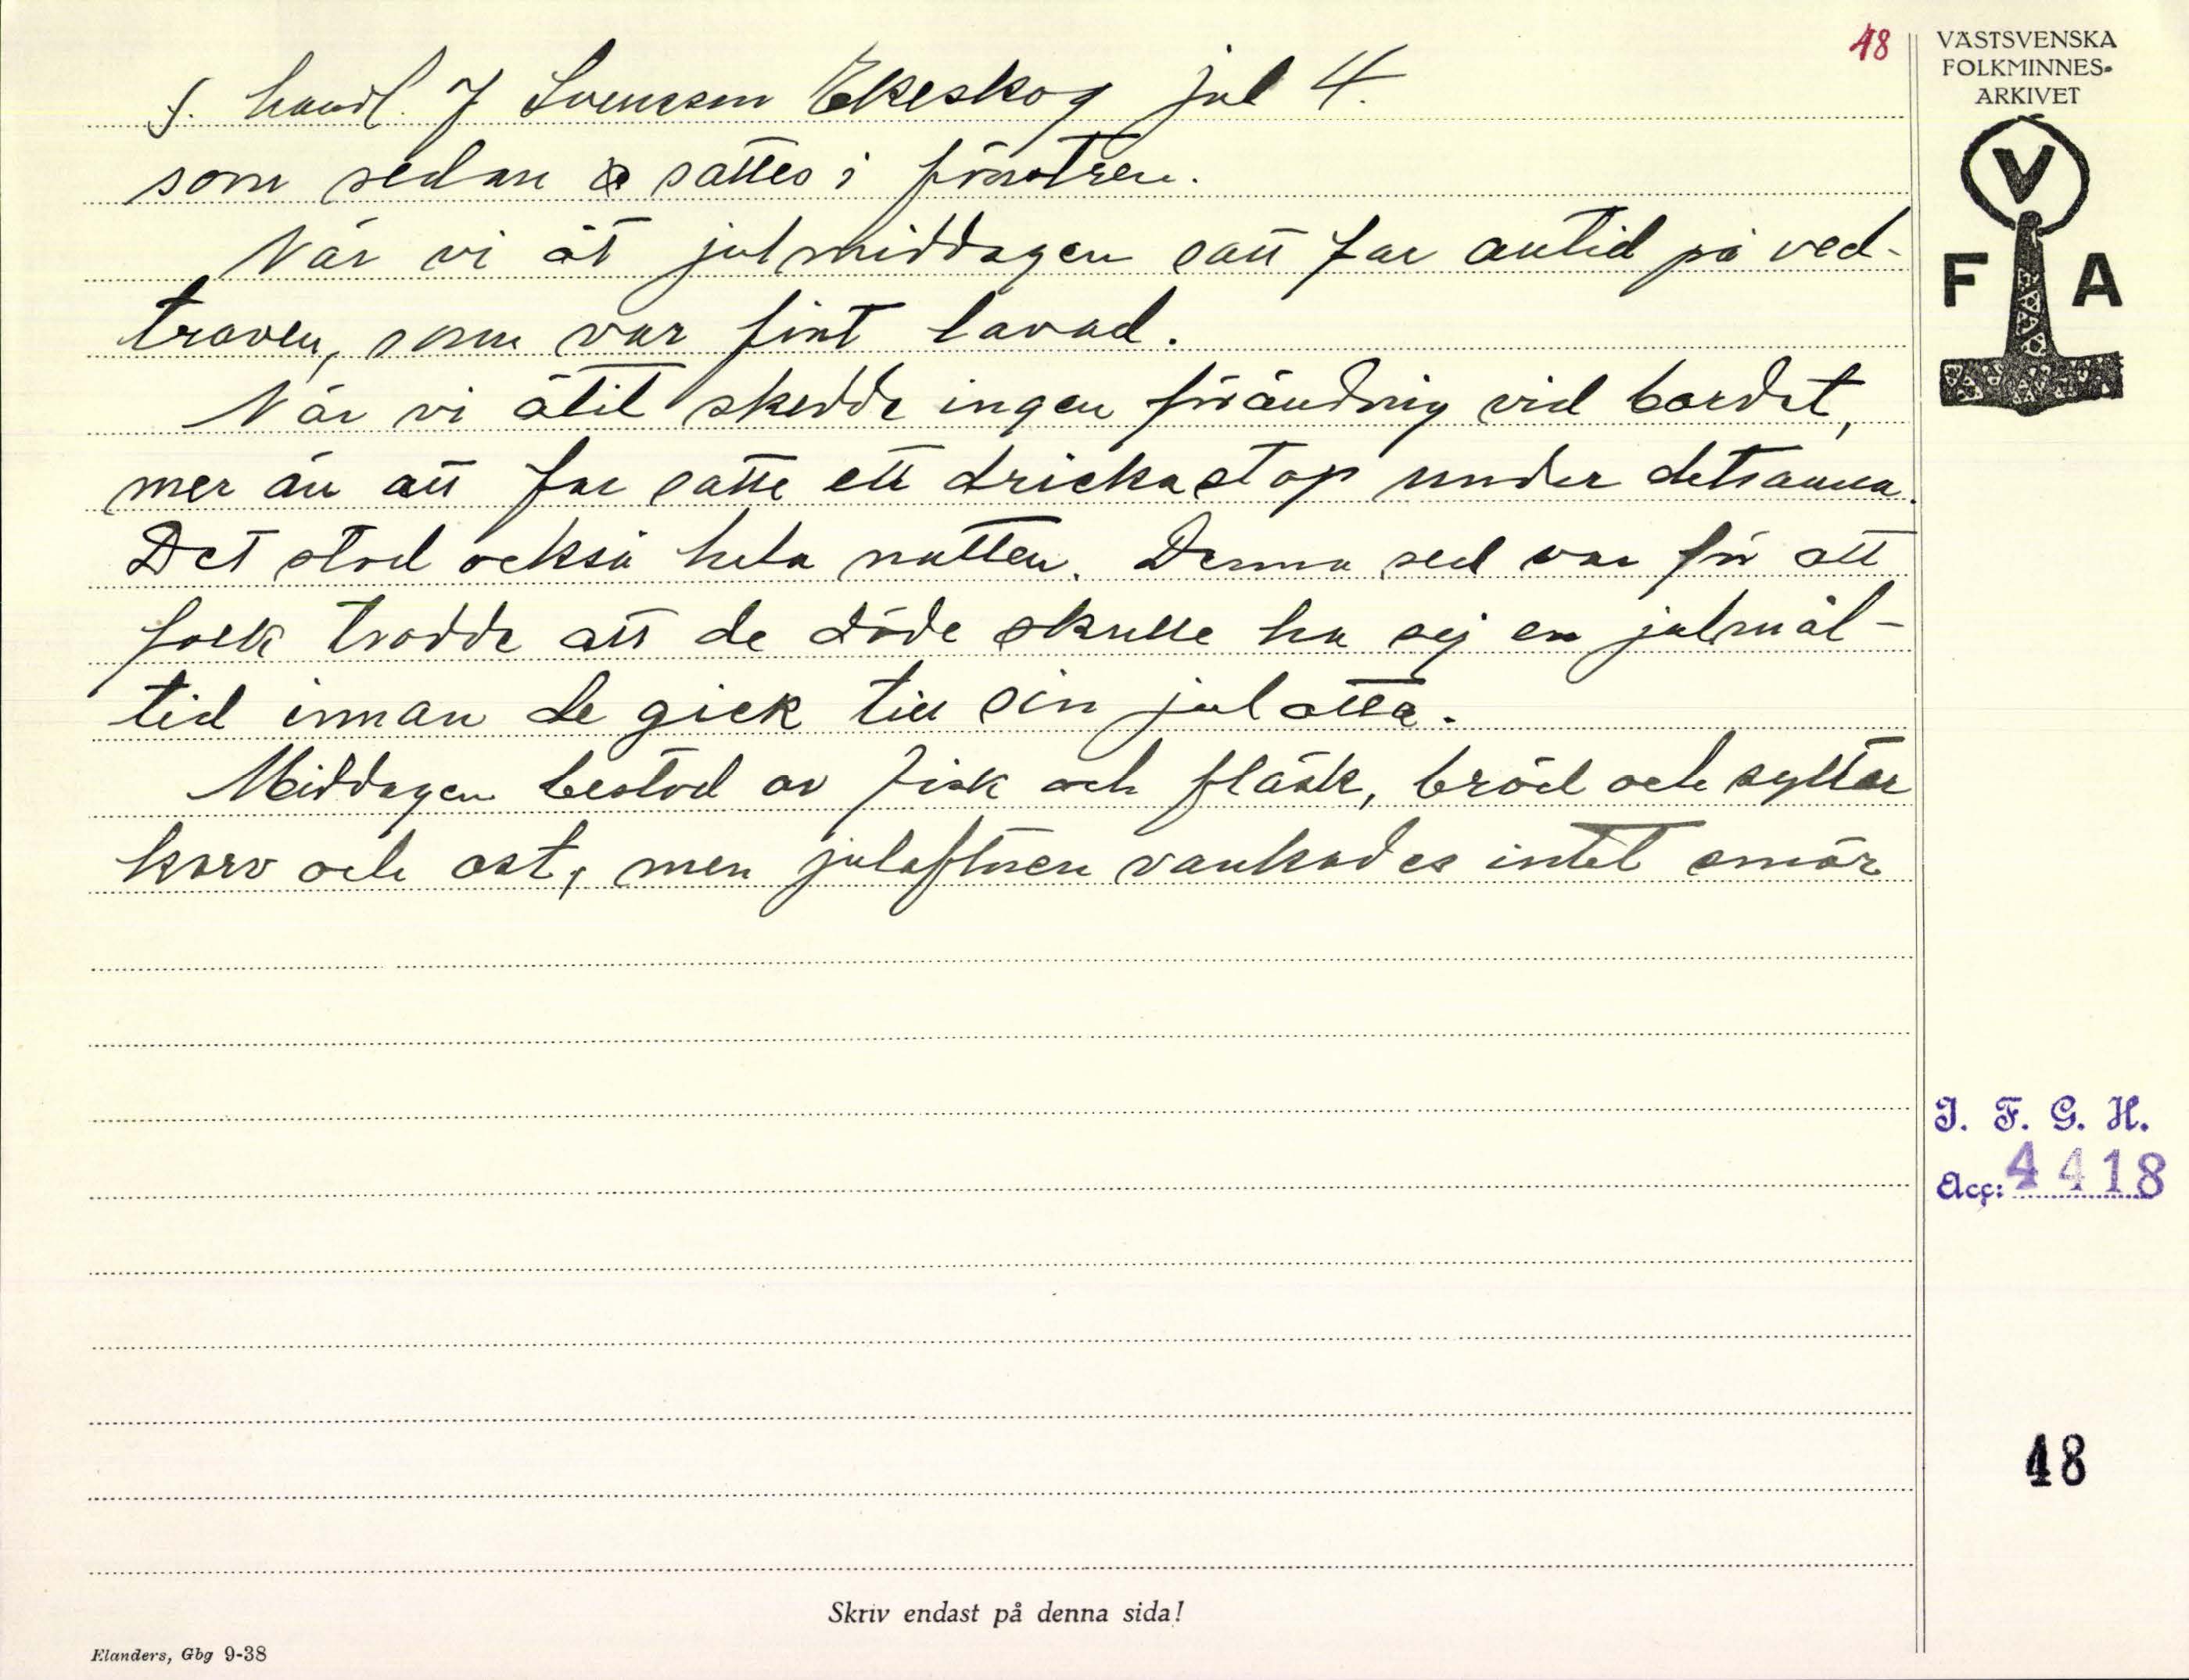 48
VÄSTSVENSKA
FOLKMINNES-
ARKIVET
V
F A
f. handl. J Svensson Ekeskog jul 4.
som sedan sattes i fönstren.
När vi åt julmiddagen satt far antid på ved-
traven, som var fint lavad.
När vi ätit skedde ingen förändrig vid bordet,
mer än att far satte ett drickastop under detsamma.
Det stod också hela natten. Denna sed var för att
folk trodde att de döde skulle ha sej en julmål-
tid innan de gick till sin julotta.
Middagen bestod av fisk och fläsk, bröd och syltar
korv och ost, men julaftnen vankades intet smör
I. F. G. H.
Acc: 4418
48
Skriv endast på denna sida!
Elanders, Gbg 9-38